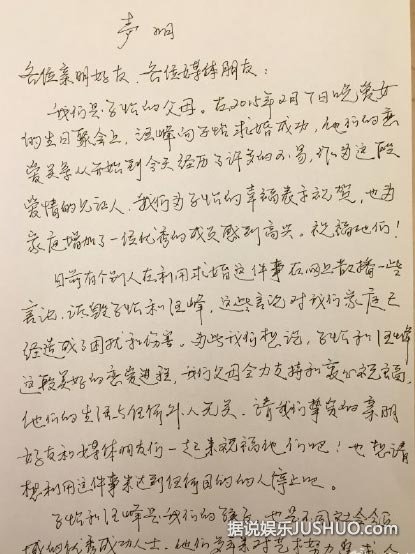 声明
各位亲朋好友、各位媒体朋友：
我们是子怡的父母。在2015年2月7日晚爱女
的生日聚会上，汪峰向子怡求婚成功，他们的恋
爱关系从开始到今天经历了许多的不易，作为这段
爱情的见证人，我们为子怡的幸福表示祝贺，也为
家庭增加了一位优秀的成员感到高兴。祝福他们！
目前有个别人在利用求婚这件事在网上散播一些
言论，诋毁子怡和汪峰，这些言论对我们家庭已
经造成了困扰和伤害。为此我们想说，子怡和汪峰
这段美好的恋爱进程，我们父母全力支持和衷心祝福，
他们的生活与任何外人无关。请我们挚爱的亲朋
好友和媒体朋友们一起来祝福他们吧！也想请
想利用这件事来达到任何目的的人停止吧。
子怡和汪峰是我们的骄傲，也是不同
域的优秀成功人士。他们
据说娱乐JUSHUO.COM